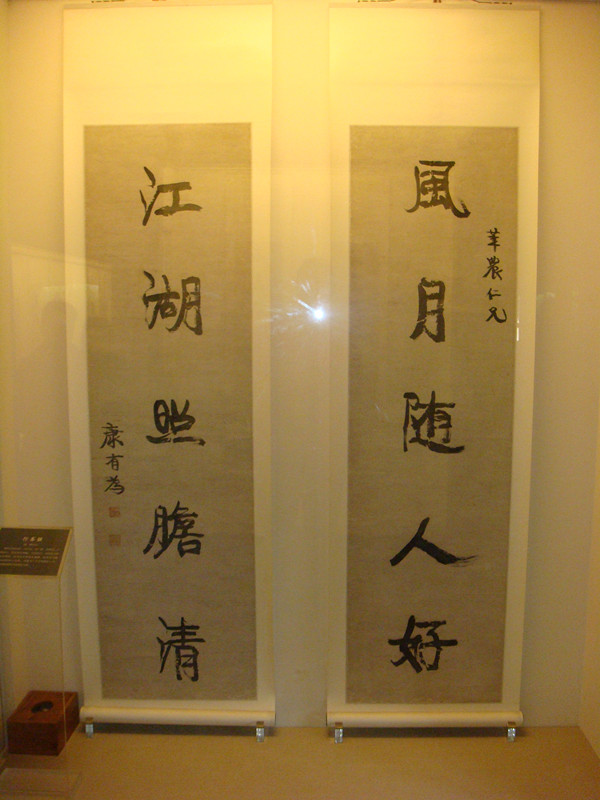 風月随人好
華農仁兄
江湖照膽清
康有為